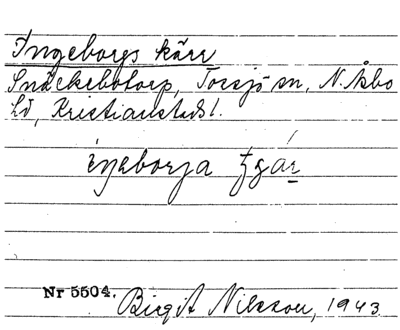 Ingeborgs kärr
Snäckebotorp, Torsjö sn, N. Åsbo
hd, Kristianstads l.
Nr 5504.
Birgit Nilsson, 1943